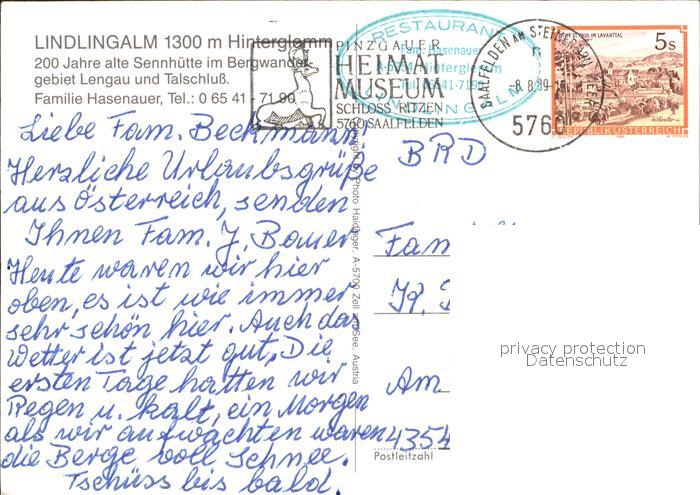 LINDLINGALM 1300 m Hinterglemm
200 Jahre alte Sennhütte im Bergwander-
gebiet Lengau und Talschluß.
Familie Hasenauer, Tel.: 0 65 41 - 71 90
PINZGAUER
HEIMAT
MUSEUM
SCHLOSS RITZEN
5760 SAALFELDEN
RESTAURANT
Fam. Hasenauer
Hinterglemm
SAALFELDEN AM STEINERNEN MEER
8. 8. 89
5760
STIFT ST. PAUL IM LAVANTTAL
5 S
REPUBLIK ÖSTERREICH
Liebe Fam. Beckmann
Herzliche Urlaubsgrüße
aus Österreich, senden
Ihnen Fam. J. Bauer
Heute waren wir hier
oben, es ist wie immer
sehr schön hier. Auch das
Wetter ist jetzt gut. Die
ersten Tage hatten wir
Regen u. kalt, ein Morgen
als wir aufwachten waren
die Berge voll Schnee.
Tschüss bis bald.
Photo Haidinger, A-5700 Zell am See, Austria
BRD
Fam
Am
4354
Postleitzahl
privacy protection
Datenschutz